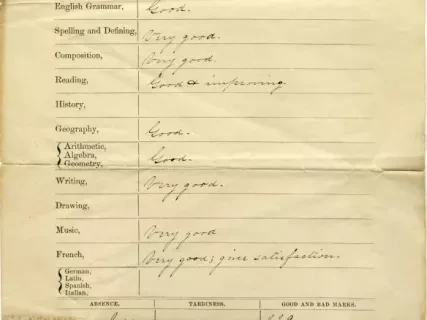 English Grammar, Good.
Spelling and Defining, Very good.
Composition, Very good.
Reading, Good & improving
History,
Geography, Good.
{ Arithmetic,
Algebra, Good.
Geometry,
Writing, Very good.
Drawing,
Music, Very good
French, Very good; gives satisfaction.
{ German,
Latin,
Spanish,
Italian,
ABSENCE. TARDINESS. GOOD AND BAD MARKS.